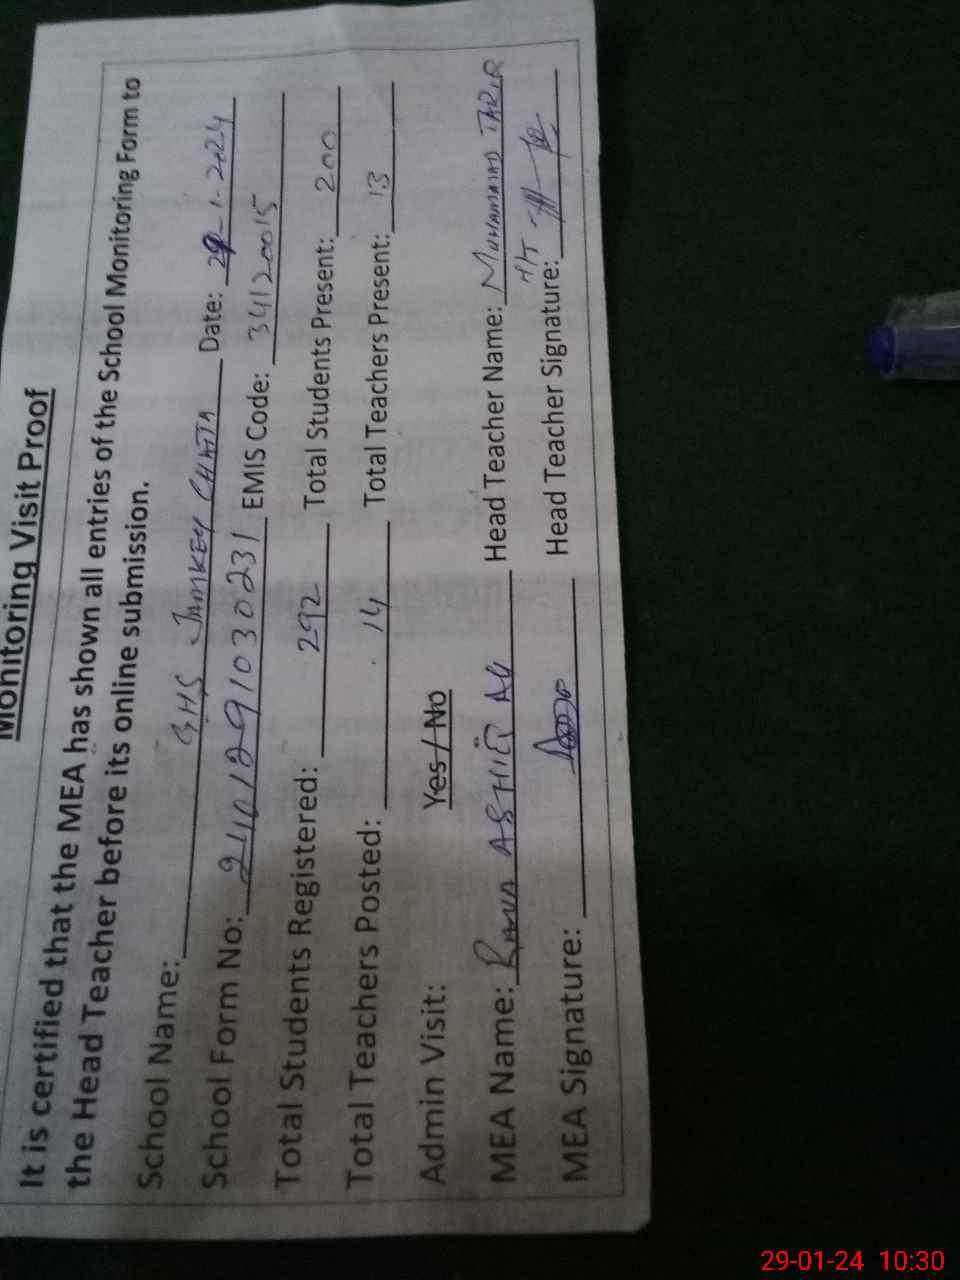 Monitoring Visit Proof
It is certified that the MEA has shown all entries of the School Monitoring Form to
the Head Teacher before its online submission.
School Name: GHS JAMKEY CHATTA Date: 29-1-2024
School Form No: 2401291030231 EMIS Code: 34120015
Total Students Registered: 292 Total Students Present: 200
Total Teachers Posted: 14 Total Teachers Present: 13
Admin Visit: Yes / No
MEA Name: RANA ASHIQ ALI Head Teacher Name: MUHAMMAD TARIQ
MEA Signature: Head Teacher Signature:
29-01-24 10:30